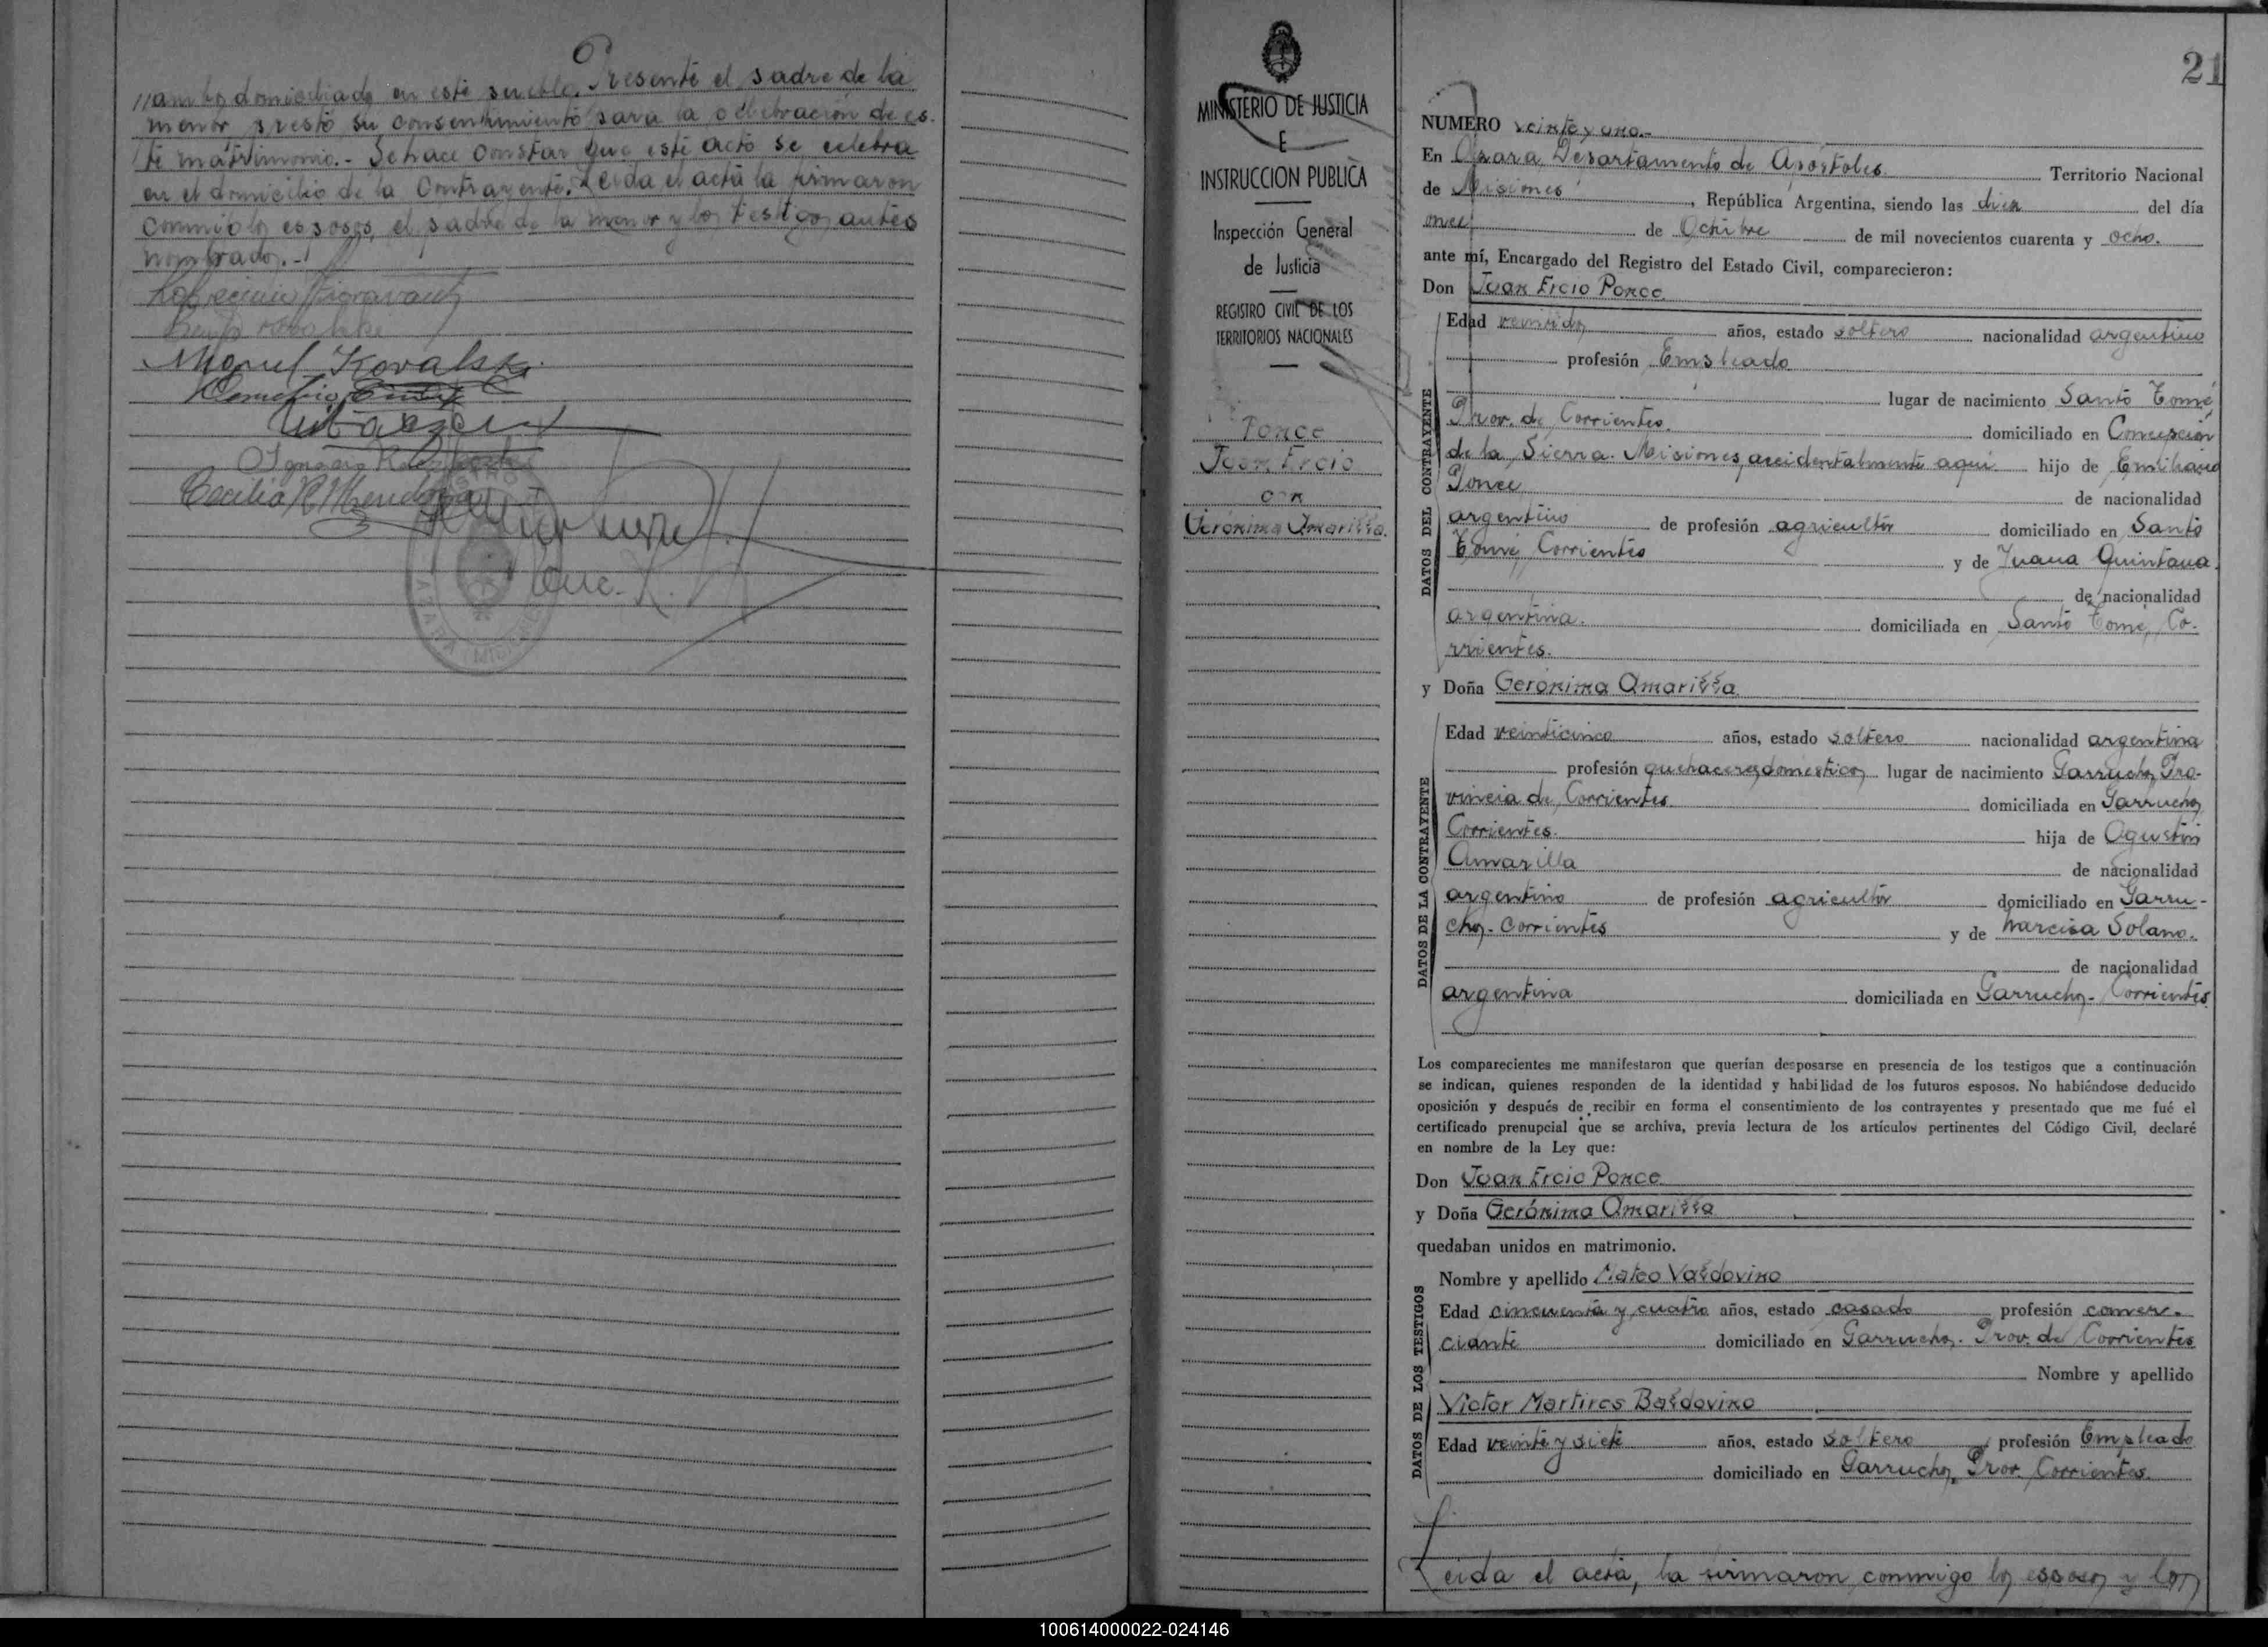 //ambos domiciliados en este pueblo. Presente el padre de la
menor prestó su consentimiento para la celebración de es-
te matrimonio.- Se hace constar que este acto se celebra
en el domicilio de la Contrayente. Leida el acta la firmaron
conmigo los esposos, el padre de la menor y los testigos antes
nombrados.-
Miguel Kovalski
Cecilia R. Mendoza
Enc. R.
MINISTERIO DE JUSTICIA
E
INSTRUCCION PUBLICA
Inspección General
de Justicia
REGISTRO CIVIL DE LOS
TERRITORIOS NACIONALES
Ponce
Juan Ercio
con
Gerónima Amarilla.
21
NUMERO veinte y uno.-
En Azara Departamento de Apóstoles Territorio Nacional
de Misiones, República Argentina, siendo las diez del día
once de Octubre de mil novecientos cuarenta y ocho.
ante mí, Encargado del Registro del Estado Civil, comparecieron:
Don Juan Ercio Ponce
DATOS DEL CONTRAYENTE
Edad veintidos años, estado soltero nacionalidad argentino
profesión Empleado
lugar de nacimiento Santo Tomé,
Prov. de Corrientes. domiciliado en Concepción
de la Sierra. Misiones, accidentalmente aquí hijo de Emiliano
Ponce de nacionalidad
argentino de profesión agricultor domiciliado en Santo
Tomé, Corrientes y de Juana Quintana.
de nacionalidad
argentina. domiciliada en Santo Tomé, Co-
rrientes.
y Doña Gerónima Amarilla
DATOS DE LA CONTRAYENTE
Edad veinticinco años, estado soltera nacionalidad argentina
profesión quehaceres domesticos lugar de nacimiento Garruchos, Pro-
vincia de Corrientes domiciliada en Garruchos
Corrientes. hija de Agustin
Amarilla de nacionalidad
argentino de profesión agricultor domiciliado en Garru-
chos- Corrientes y de Narcisa Solano.
de nacionalidad
argentina domiciliada en Garruchos- Corrientes
Los comparecientes me manifestaron que querían desposarse en presencia de los testigos que a continuación
se indican, quienes responden de la identidad y habilidad de los futuros esposos. No habiéndose deducido
oposición y después de recibir en forma el consentimiento de los contrayentes y presentado que me fué el
certificado prenupcial que se archiva, previa lectura de los artículos pertinentes del Código Civil, declaré
en nombre de la Ley que:
Don Juan Ercio Ponce
y Doña Gerónima Amarilla
quedaban unidos en matrimonio.
DATOS DE LOS TESTIGOS
Nombre y apellido Mateo Valdovino
Edad cincuenta y cuatro años, estado casado profesión comer-
ciante domiciliado en Garruchos- Prov. de Corrientes
Nombre y apellido
Victor Martires Baldovino
Edad veinte y siete años, estado soltero profesión Empleado
domiciliado en Garruchos, Prov. Corrientes.
Leida el acta, la firmaron conmigo los esposos y los
100614000022-024146